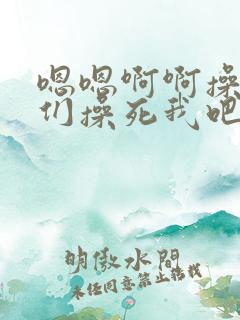 嗯嗯啊啊操
们操死我吧
明傲水閁
未经同意禁止转载